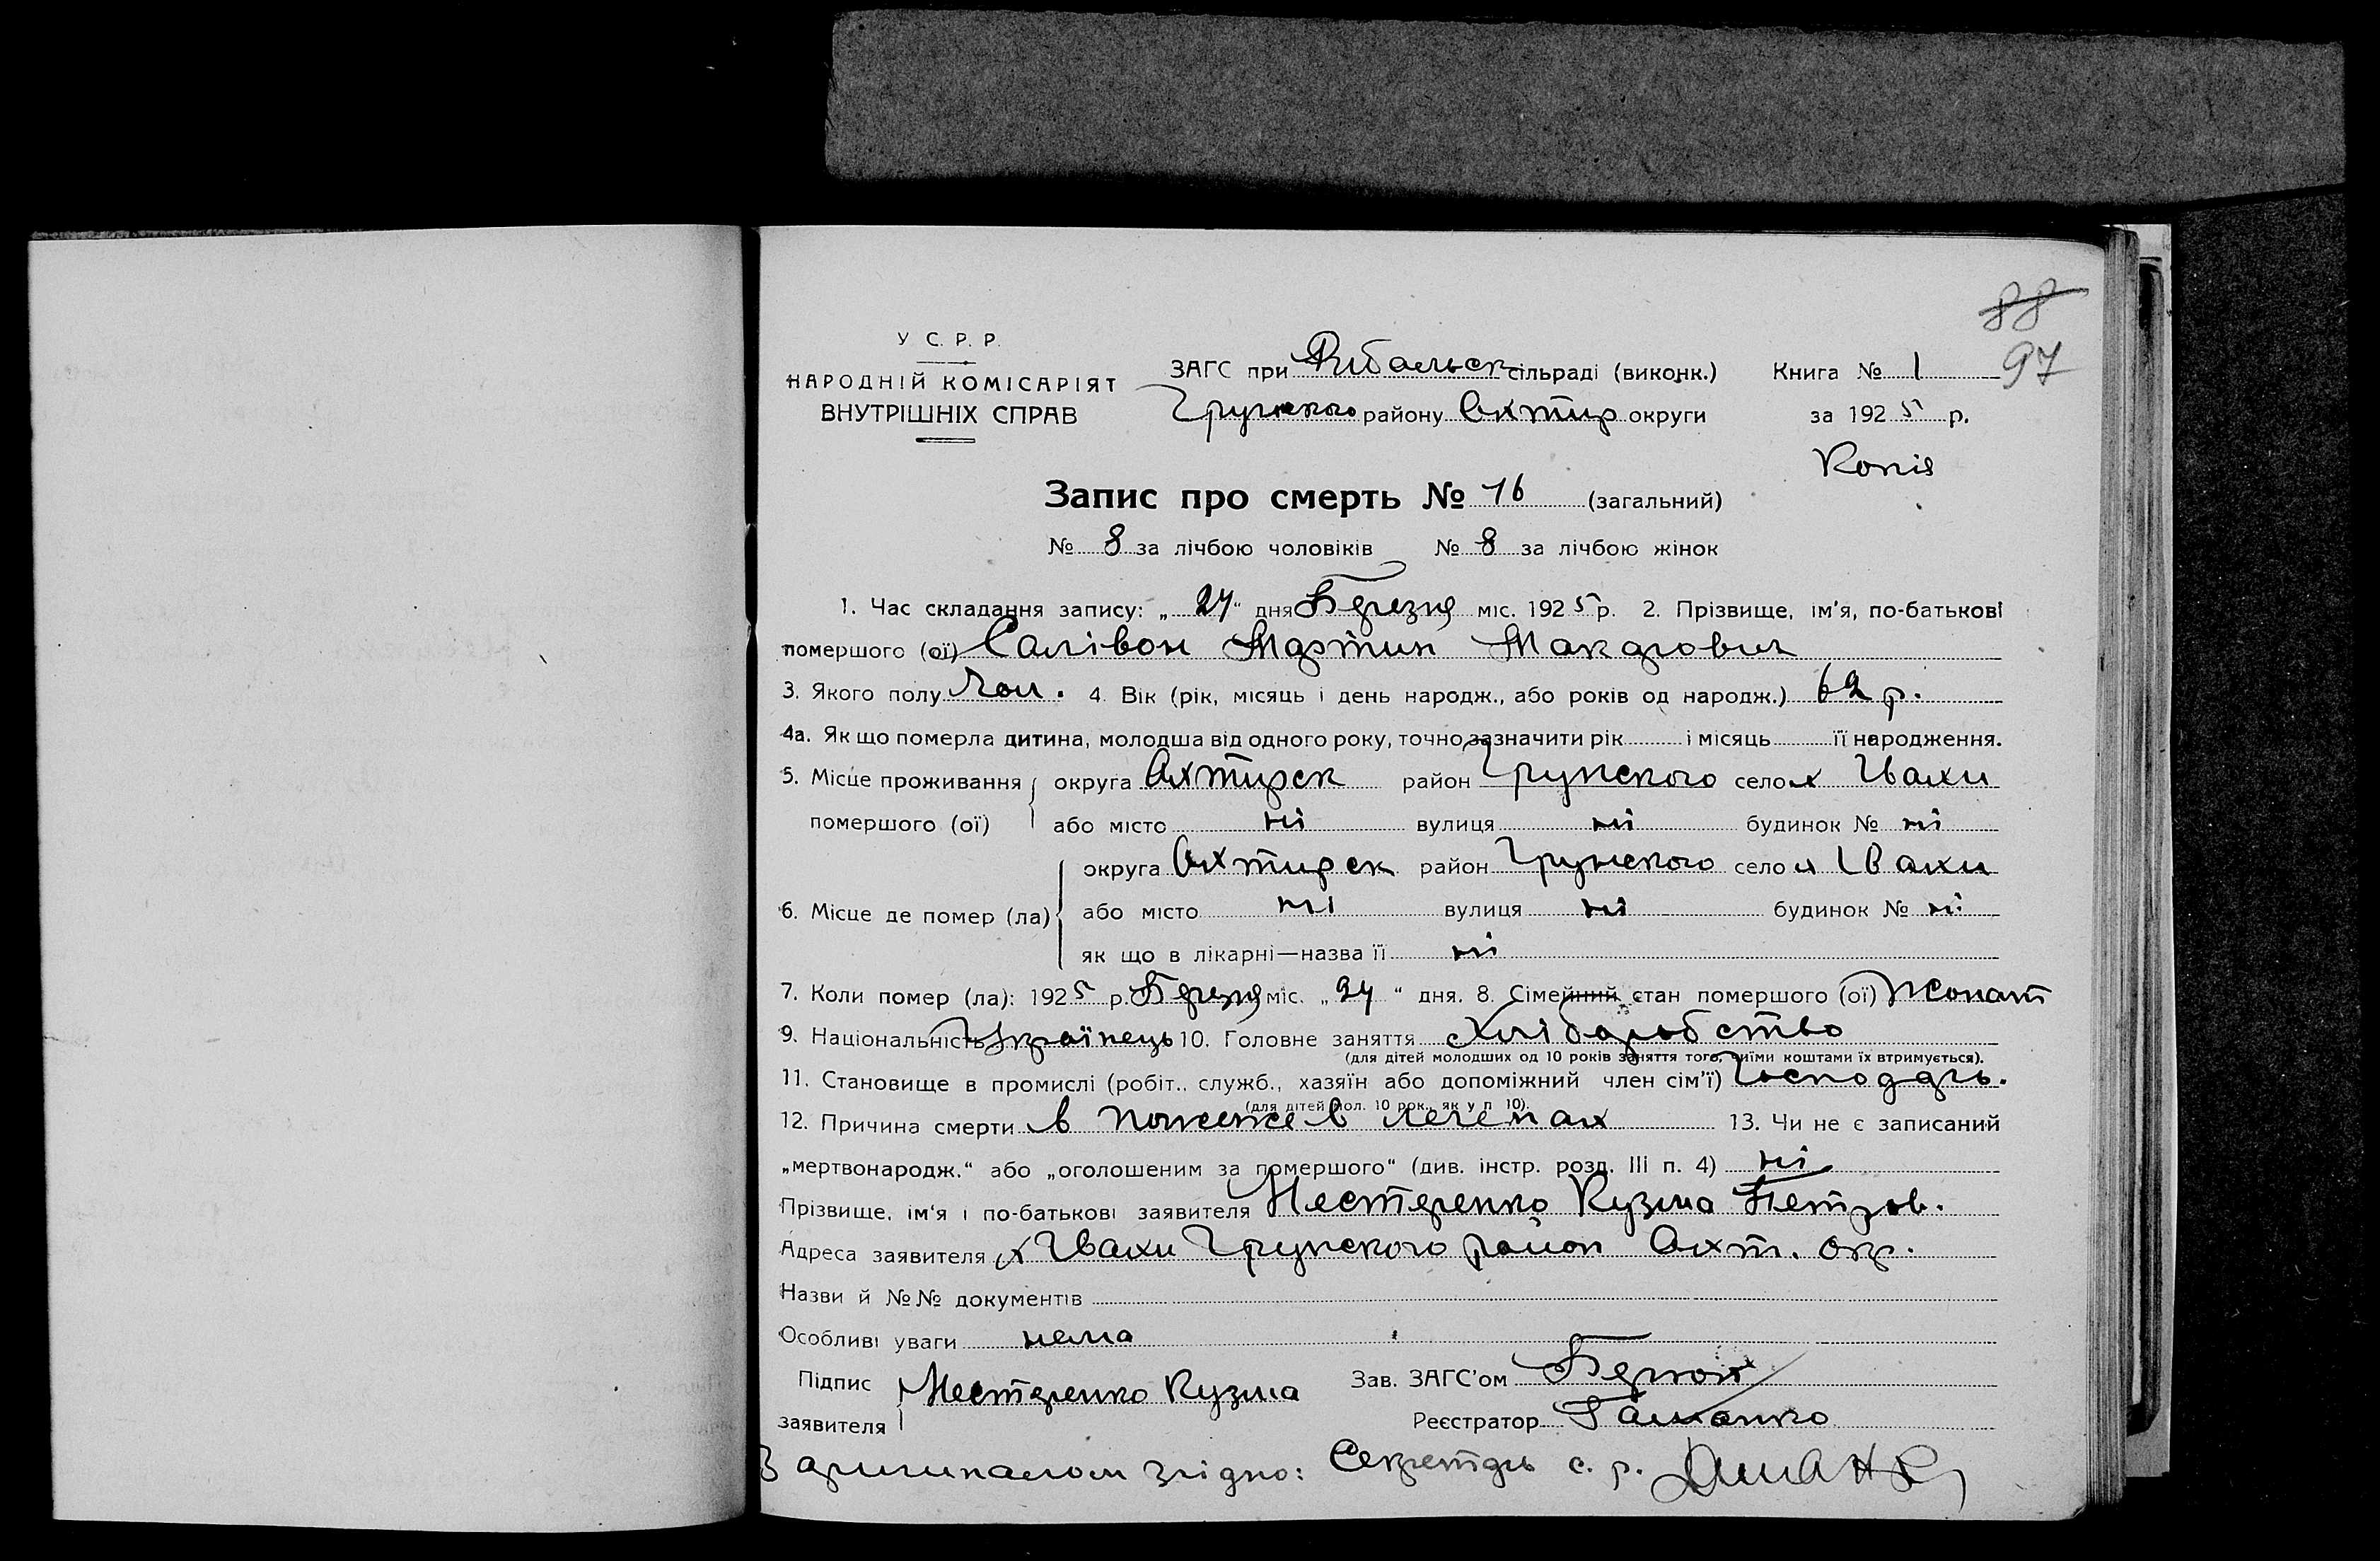 88
97
У С. Р. Р.
НАРОДНІЙ КОМІСАРІЯТ
ВНУТРІШНІХ СПРАВ
ЗАГС при Рибальск сільраді (виконк.)
Грунского району Охтир округи
Книга № 1
за 1925 р.
Копія
Запис про смерть № 16 (загальний)
№ 8 за лічбою чоловіків № 8 за лічбою жінок
1. Час складання запису: „24“ дня Березня міс. 1925 р. 2. Прізвище, ім'я, по-батькові
помершого (ої) Салівон Мартин Макарович
3. Якого полу Чол. 4. Вік (рік, місяць і день народж., або років од народж.) 62 р.
4а. Як що померла дитина, молодша від одного року, точно зазначити рік і місяць її народження.
5. Місце проживання округа Охтирск район Грунского село х Івахи
помершого (ої) або місто ні вулиця ні будинок № ні
округа Охтирск район Грунского село х Івахи
6. Місце де помер (ла) або місто ні вулиця ні будинок № ні
як що в лікарні—назва її ні
7. Коли помер (ла): 1925 р. Березня міс. „24“ дня. 8. Сімейний стан помершого (ої) Жонат
9. Національність Українець 10. Головне заняття Хліборобство
(для дітей молодших од 10 років заняття того, чиїми коштами їх втримується).
11. Становище в промислі (робіт., служб., хазяїн або допоміжний член сім'ї) Господарь.
(для дітей мол. 10 рок., як у п 10).
12. Причина смерти в 13. Чи не є записаний
„мертвонародж.“ або „оголошеним за помершого“ (див. інстр. розд. III п. 4) ні
Прізвище, ім'я і по-батькові заявителя Нестеренко Кузма Петров.
Адреса заявителя х Івахи Грунского район Охт. окр.
Назви й №№ документів
Особливі уваги нема
Підпис
заявителя Нестеренко Кузма
Зав. ЗАГС'ом
Реєстратор
З оригиналом згідно: Секретарь с. р.